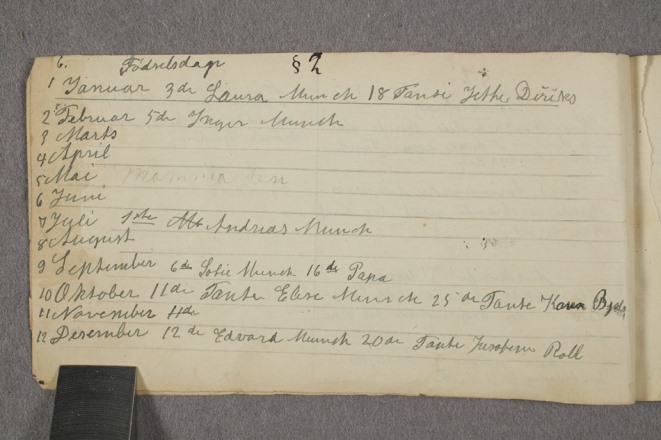 6. Födselsdage § 2
1 Januar 3de Laura Munch 18 Tante Jethe Diriks
2 Februar 5de Inger Munch
3 Marts
4 April
5 Mai Mamma den
6 Juni
7 Juli 1ste Andreas Munch
8 August
9 September 6de Sofie Munch 16de Papa
10 Oktober 11de Tante Elise Munch 25de Tante Karen
11 November 4de
12 Desember 12de Edvard Munch 20de Tante Roll